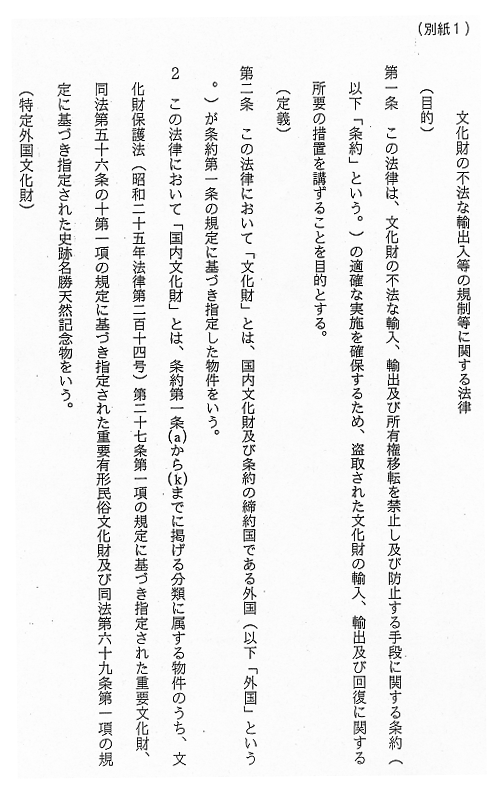 (別紙1)
文化財の不法な輸出入等の規制等に関する法律
(目的)
第一条 この法律は、文化財の不法な輸入、輸出及び所有権移転を禁止し及び防止する手段に関する条約(
以下「条約」という。)の適確な実施を確保するため、盗取された文化財の輸入、輸出及び回復に関する
所要の措置を講ずることを目的とする。
(定義)
第二条 この法律において「文化財」とは、国内文化財及び条約の締約国である外国(以下「外国」という
。)が条約第一条の規定に基づき指定した物件をいう。
2 この法律において「国内文化財」とは、条約第一条(a)から(k)までに掲げる分類に属する物件のうち、文
化財保護法(昭和二十五年法律第二百十四号)第二十七条第一項の規定に基づき指定された重要文化財、
同法第五十六条の十第一項の規定に基づき指定された重要有形民俗文化財及び同法第六十九条第一項の規
定に基づき指定された史跡名勝天然記念物をいう。
(特定外国文化財)